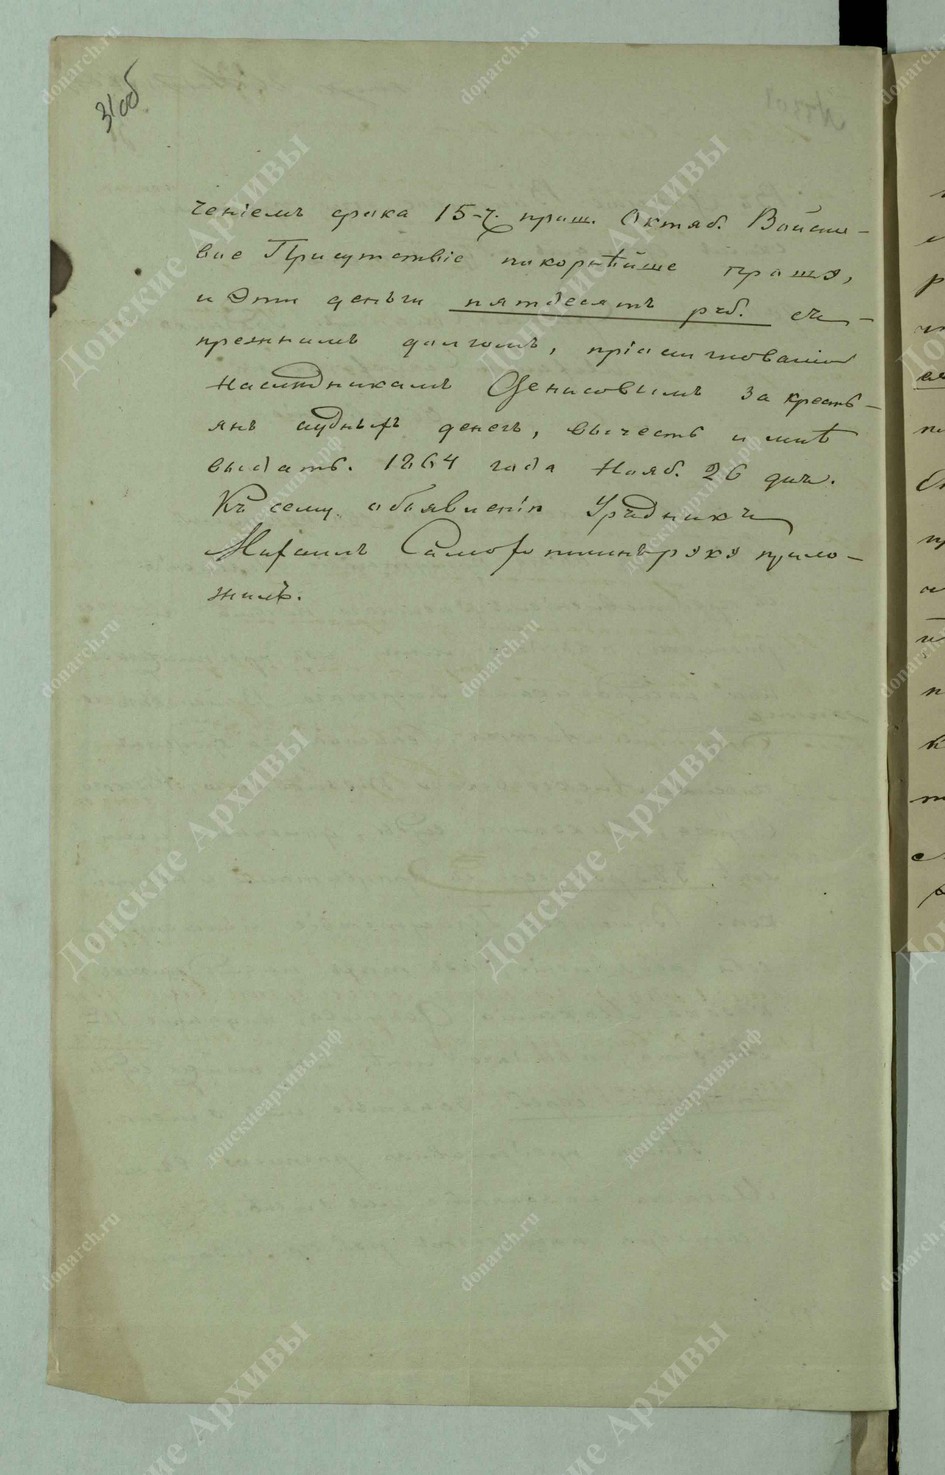 31об
ченіемъ срока 15-ч. прош. Октяб. Войско-
вое Присутствіе покорнѣйше прошу,
и эти деньги пятдесятъ руб. съ
прежнимъ долгомъ, при ассигнованіи
наслѣдникамъ Денисовымъ за кресть-
янъ ссудныхъ денегъ, вычесть и мнѣ
выдать. 1864 года Нояб. 26 дня.
Къ сему объявленію Урядникъ
Михаилъ руку прило-
жилъ.
Донские Архивы
donarch.ru
донскиеархивы.рф